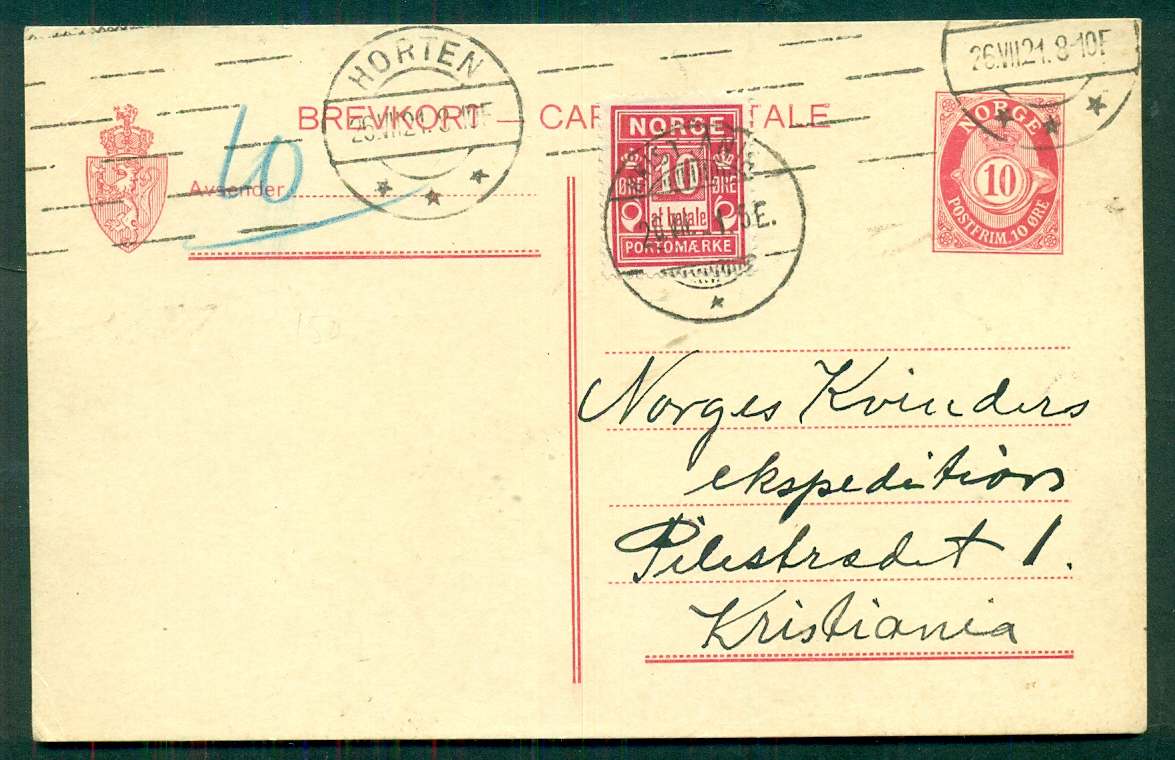 HORTEN
26.VII.21. 8-10F
26.VII.21. 8-10F
BREVKORT — CAR TALE
10
Avsender
NORGE
10
ØRE ØRE
at betale
PORTOMÆRKE
NORGE
10
POSTFRIM. 10 ØRE
150
Norges Kvinders
ekspedition
Pilestrædet 1.
Kristiania